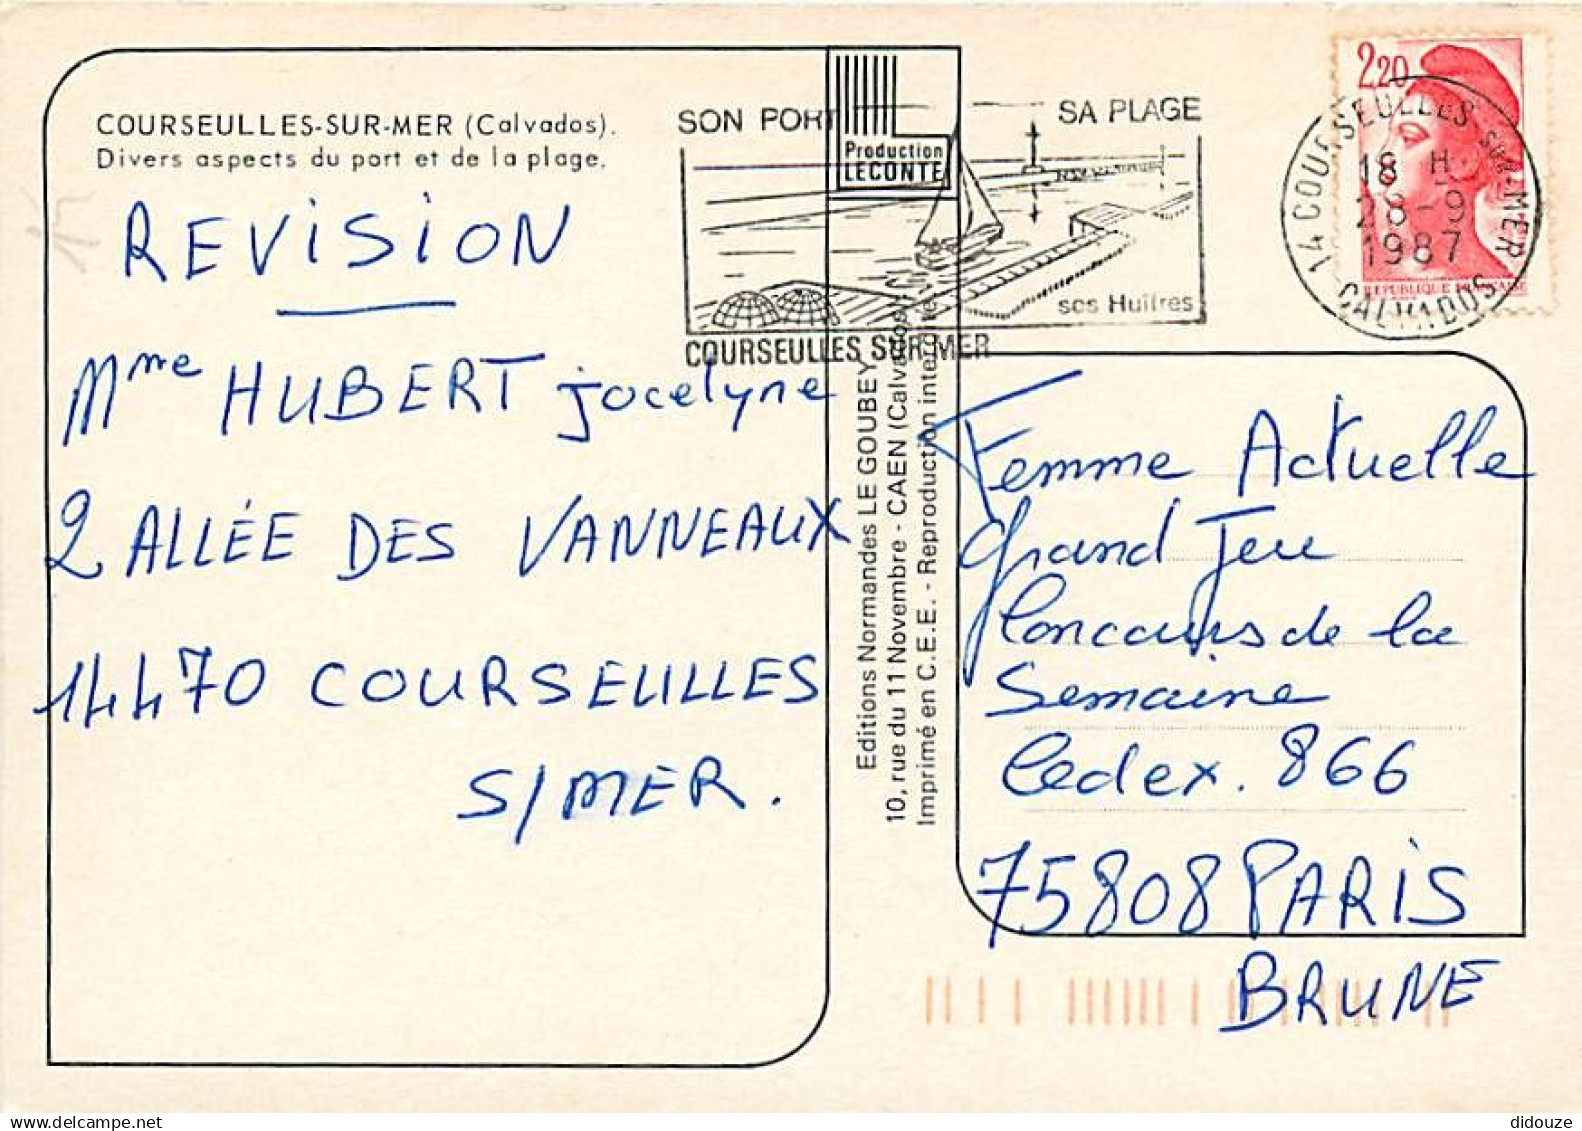 COURSEULLES-SUR-MER (Calvados).
Divers aspects du port et de la plage.
SON PORT
SA PLAGE
ses Huîtres
COURSEULLES SUR MER
Production
LECONTE
2,20
REPUBLIQUE FRANÇAISE
14 COURSEULLES-SUR-MER
18 H
28-9
1987
CALVADOS
REViSiON
Mme HUBERT jocelyne
2 ALLÉE DES VANNEAUX
14470 COURSEULLES
S/MER.
Editions Normandes LE GOUBEY
10, rue du 11 Novembre - CAEN (Calvados)
Imprimé en C.E.E. - Reproduction interdite
Femme Actuelle
Grand Jeu
Concours de la
Semaine
Cedex. 866
75808 PARiS
BRUNE
didouze